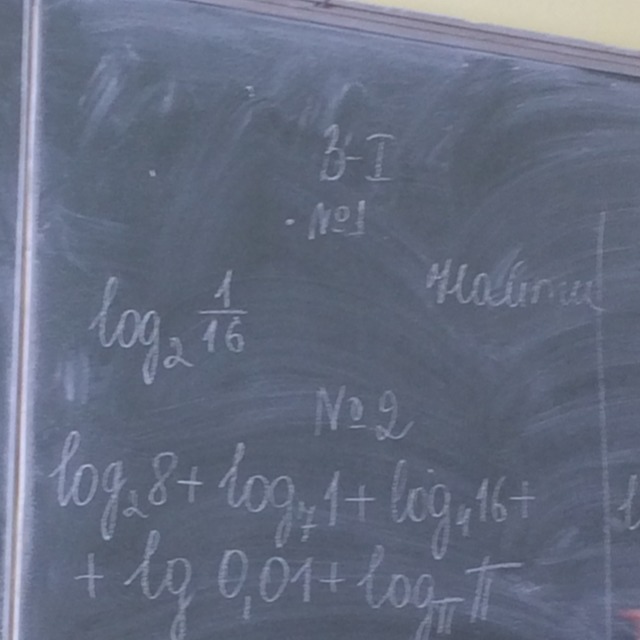 В-I
№1
log₂ 1/16
Найти
№2
log₂8 + log₇1 + log₄16 +
+ lg 0,01 + log_π π